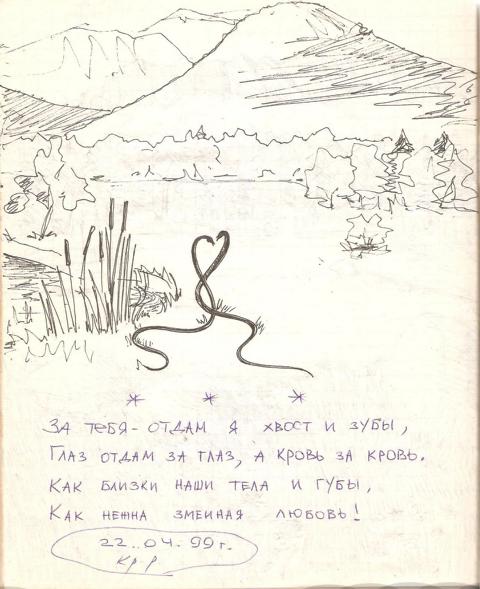 * * *
ЗА ТЕБЯ - ОТДАМ Я ХВОСТ И ЗУБЫ,
ГЛАЗ ОТДАМ ЗА ГЛАЗ, А КРОВЬ ЗА КРОВЬ.
КАК БЛИЗКИ НАШИ ТЕЛА И ГУБЫ,
КАК НЕЖНА ЗМЕИНАЯ ЛЮБОВЬ!
22.04.99г.
Кр.Р